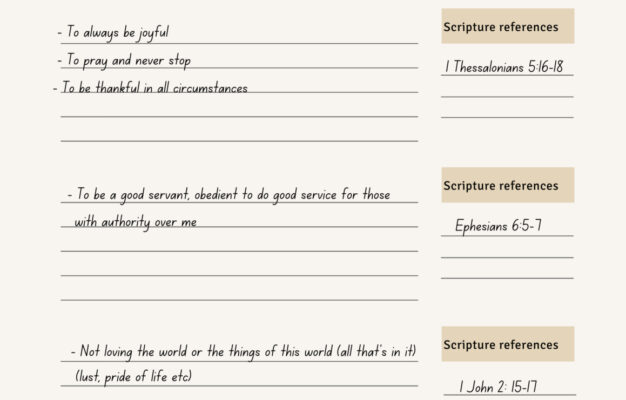 - To always be joyful
- To pray and never stop
- To be thankful in all circumstances
Scripture references
1 Thessalonians 5:16-18
- To be a good servant, obedient to do good service for those
with authority over me
Scripture references
Ephesians 6:5-7
- Not loving the world or the things of this world (all that's in it)
(lust, pride of life etc)
Scripture references
1 John 2: 15-17